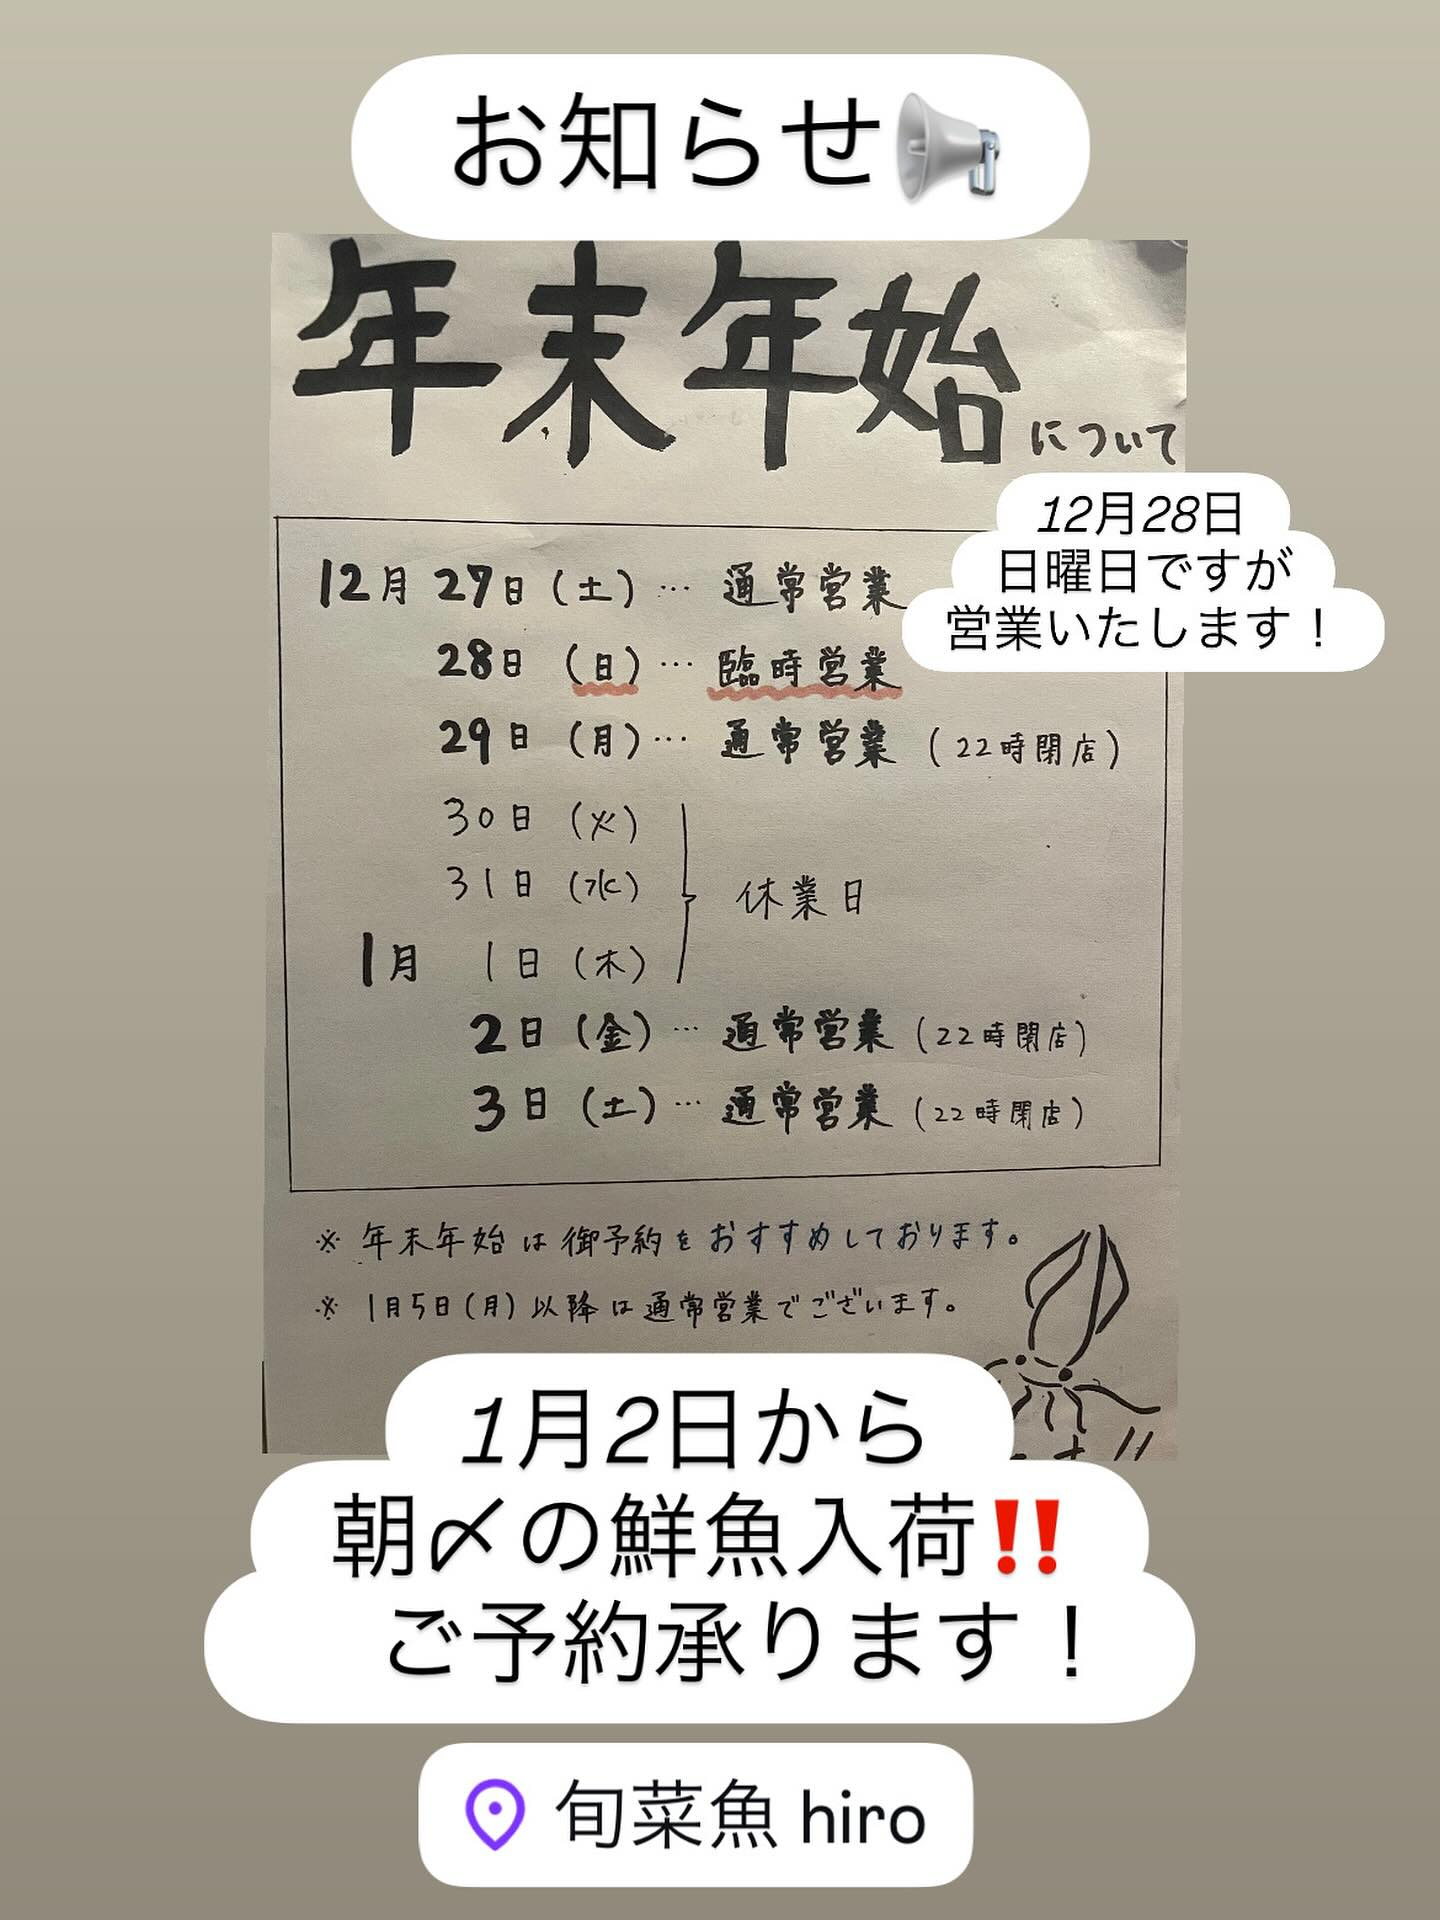 お知らせ📢
年末年始について
12月28日
日曜日ですが
営業いたします！
12月27日(土)… 通常営業
28日(日)… 臨時営業
29日(月)… 通常営業(22時閉店)
30日(火)
31日(水)
休業日
1月 1日(木)
2日(金)… 通常営業(22時閉店)
3日(土)… 通常営業(22時閉店)
※ 年末年始は御予約をおすすめしております。
※ 1月5日(月)以降は通常営業でございます。
1月2日から
朝〆の鮮魚入荷‼️
ご予約承ります！
旬菜魚 hiro